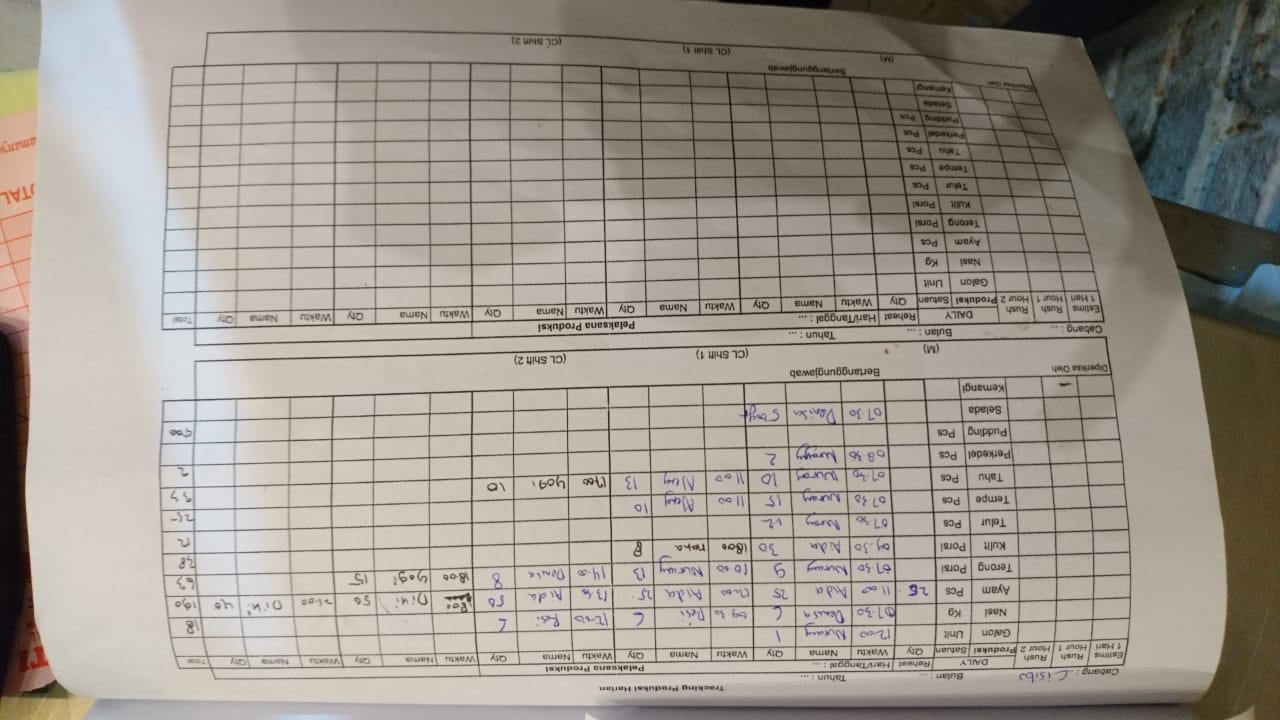 Tracking Produksi Harian
Cabang : ... Cisitu Bulan : ... Tahun : ...
Estims 1 Hari Rush Hour 1 Rush Hour 2 DAILY Produksi Satuan Reheat Qty Hari/Tanggal : ... Pelaksana Produksi
Waktu Nama Qty Waktu Nama Qty Waktu Nama Qty Waktu Nama Qty Waktu Nama Qty Total
Galon Unit 12.00 Nurany 1
Nasi Kg 07.30 Denisa 6 09.30 Resi 6 12.00 Resi 6 18
Ayam Pcs 25 11.00 Aida 25 12.00 Aida 25 13.30 Aida 50 Diki 50 21.00 Diki 40 190
Terong Porsi 07.30 Nurany 9 10.00 Nurany 13 14.00 Denisa 8 18.00 Yogi 15 63
Kulit Porsi 09.30 Aida 30 18.00 8 38
Telur Pcs 07.30 Nurany 12 12
Tempe Pcs 07.30 Nurany 15 11.00 10 25
Tahu Pcs 07.30 Nurany 10 11.00 13 17.00 Yogi 10 33
Perkedel Pcs 08.30 Nurany 2 2
Pudding Pcs
Selada 07.30 Denisa 500gr 500
Kemangi
Diperiksa Oleh Bertanggungjawab
(M) (CL Shift 1) (CL Shift 2)
Cabang : ... Bulan : ... Tahun : ...
Estims 1 Hari Rush Hour 1 Rush Hour 2 DAILY Produksi Satuan Reheat Qty Hari/Tanggal : ... Pelaksana Produksi
Waktu Nama Qty Waktu Nama Qty Waktu Nama Qty Waktu Nama Qty Waktu Nama Qty Total
Galon Unit
Nasi Kg
Ayam Pcs
Terong Porsi
Kulit Porsi
Telur Pcs
Tempe Pcs
Tahu Pcs
Perkedel Pcs
Pudding Pcs
Selada
Kemangi
Diperiksa Oleh Bertanggungjawab
(M) (CL Shift 1) (CL Shift 2)